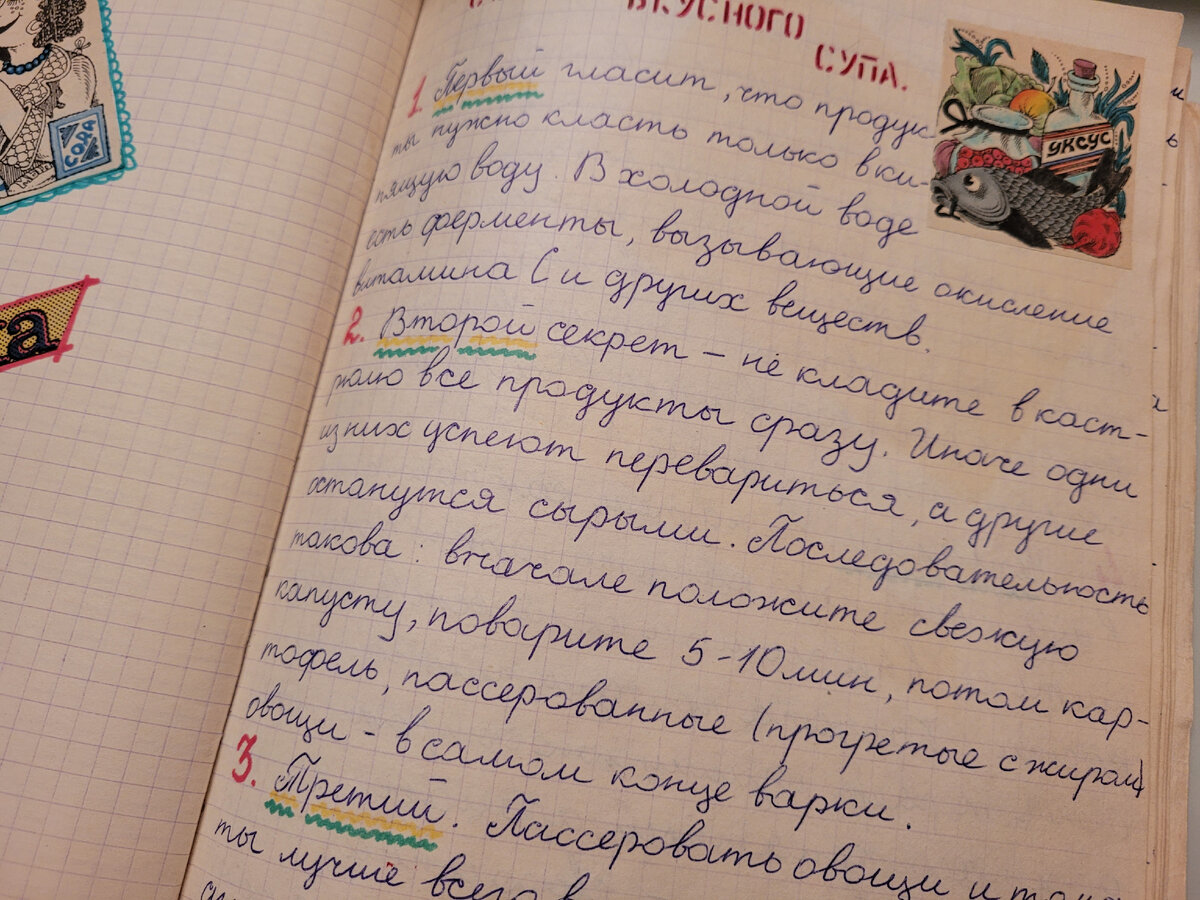 СОДА
а
ВКУСНОГО
СУПА.
1 Первый гласит, что продук-
ты нужно класть только в ки-
пящую воду. В холодной воде
есть ферменты, вызывающие окисление
витамина С и других веществ.
2. Второй секрет – не кладите в каст-
рюлю все продукты сразу. Иначе одни
из них успеют перевариться, а другие
останутся сырыми. Последовательность
такова: вначале положите свежую
капусту, поварите 5-10 мин, потом кар-
тофель, пассерованные (прогретые с жиром)
овощи – в самом конце варки.
3. Третий. Пассеровать овощи и
ты лучше всего в
УКСУС